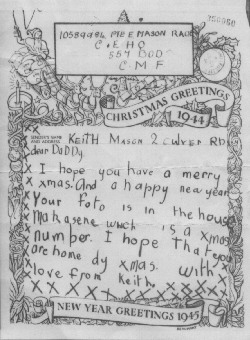 10589984 PTE E MASON RAOC
C & E HQ
557 BOD
C M F
CHRISTMAS GREETINGS
1944
SENDER'S NAME
AND ADDRESS
KEITH MASON 2 CULVER RD
dear DaDDy.
I hope you have a merry
xmas. And a happy new year
Your foto is in the house
Makasene wwch is a xmas
number. I hope That you
are home dy xmas. with
love from Keith.
x x x x x x x x x x
NEW YEAR GREETINGS 1945